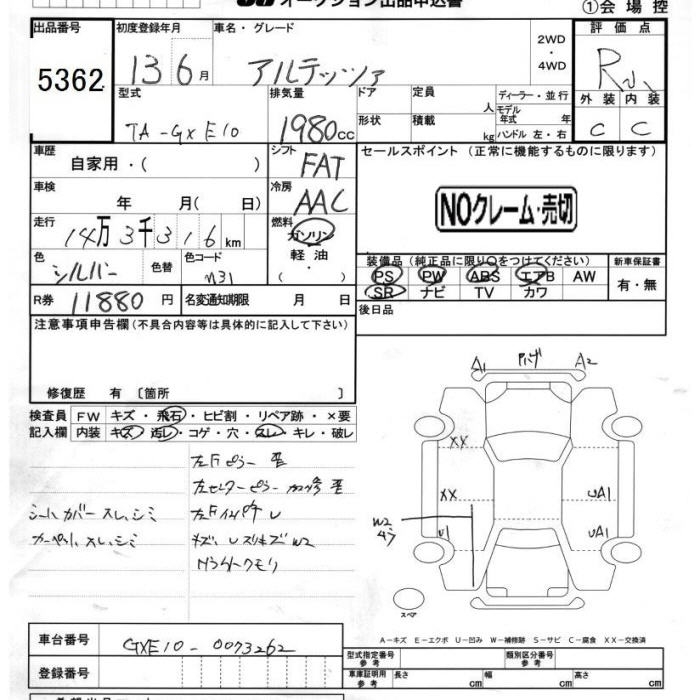 オークション出品申込書
①会場控
出品番号 5362
初度登録年月 13 6月
車名・グレード アルテッツァ
2WD・4WD
評価点 R
外装 C 内装 C
型式 TA-GXE10
排気量 1980cc
ドア 形状
定員 人 積載 kg
ディーラー・並行
モデル年式 年
ハンドル 左・右
車歴 自家用・( )
シフト FAT
車検 年 月( 日)
冷房 AAC
走行 14万3千316km
燃料 ガソリン 軽油・
色 シルバー 色替
色コード
R券 11880円
名変通知期限 月 日
セールスポイント (正常に機能するものに限ります)
NOクレーム・売切
装備品 (純正品に限り○をつけてください)
PS PW ABS エアB AW
SR ナビ TV カワ
新車保証書 有・無
後日品
注意事項申告欄 (不具合内容等は具体的に記入して下さい)
修復歴 有 [箇所 ]
検査員記入欄
FW キズ・飛石・ヒビ割・リペア跡・×要
内装 キズ・汚レ・コゲ・穴・スレ・キレ・破レ
左Fピラー
左センターピラー
シートカバー スレ、シミ
カーペット スレ、シミ
A1 A2
XX
XX UA1
W2 U1 UA1
スペア
A-キズ E-エクボ U-凹み W-補修跡 S-サビ C-腐食 XX-交換済
車台番号 GXE10-0073262
登録番号
型式指定番号 参考
類別区分番号 参考
車庫証明用 参考 長さ cm 幅 cm 高さ cm